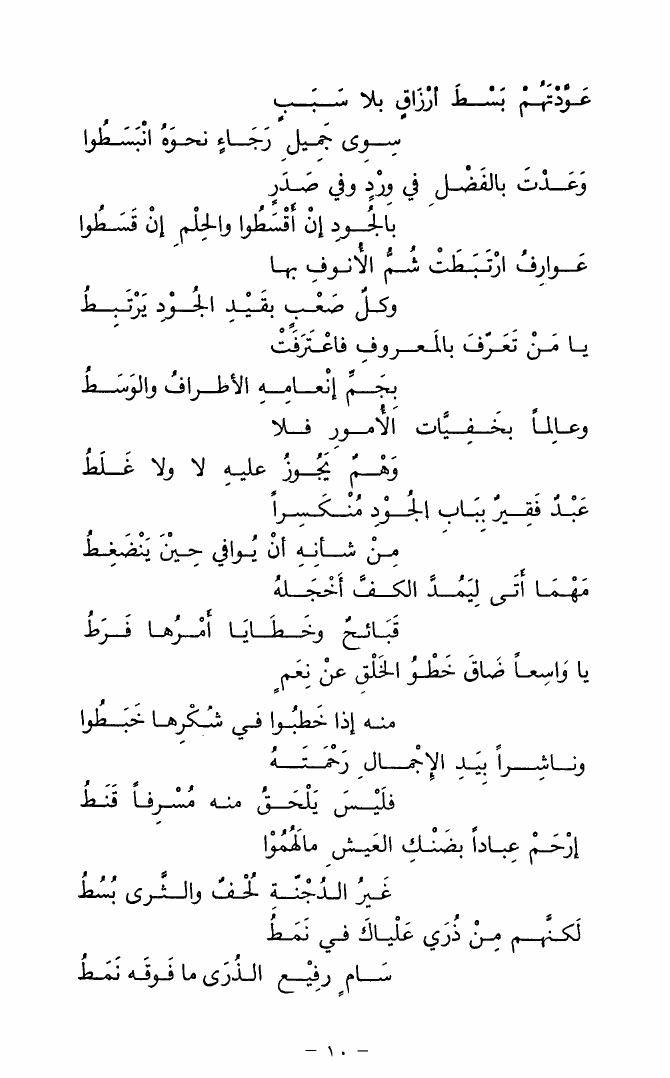 عَوَّدْتَهُمْ بَسْطَ أرْزَاقٍ بلا سَبَبٍ
سوى جَميلِ رَجَاءٍ نحوَهُ انْبَسَطُوا
وَعَدْتَ بالفَضْلِ في وِرْدٍ وفي صَدَرٍ
بالجُودِ إنْ أقْسَطُوا والحِلْمِ إنْ قَسَطُوا
عَوارِفُ ارْتَبَطَتْ شُمُّ الأُنوفِ بها
وكلُّ صَعْبٍ بقَيْدِ الجُوْدِ يَرْتَبِطُ
يا مَنْ تَعَرَّفَ بالمَعروفِ فاعْتَرَفَتْ
بجَمِّ إنْعامِهِ الأطرافُ والوَسَطُ
وعالِماً بخَفِيَّات الأُمورِ فلا
وَهْمٌ يَجُوزُ عليهِ لا ولا غَلَطُ
عَبْدٌ فَقِيرٌ بِبَابِ الجُوْدِ مُنْكَسِراً
مِنْ شأنِهِ أنْ يُوافي حِينَ يَنْضَغِطُ
مَهْمَا أَتَى لِيَمُدَّ الكفَّ أَخْجَلهُ
قَبَائحٌ وخَطَايَا أمْرُها فَرَطُ
يا وَاسِعاً ضَاقَ خَطْوُ الخَلْقِ عنْ نِعَمٍ
منه إذا خَطبُوا في شُكْرِها خَبَطُوا
وناشِراً بِيَدِ الإِجْمالِ رَحْمَتَهُ
فلَيْسَ يَلْحَقُ منه مُسْرِفاً قَنَطُ
إرْحَمْ عِباداً بضَنْكِ العَيشِ مالَهُمُوْا
غَيرُ الدُجْنَّةِ لُحْفٌ والثَّرى بُسُطُ
لَكنَّهم مِنْ ذُرَي عَلْيَاكَ في نَمَطُ
سَامٍ رفِيْعِ الذُرَى ما فَوقَه نَمَطُ
- ١٠ -